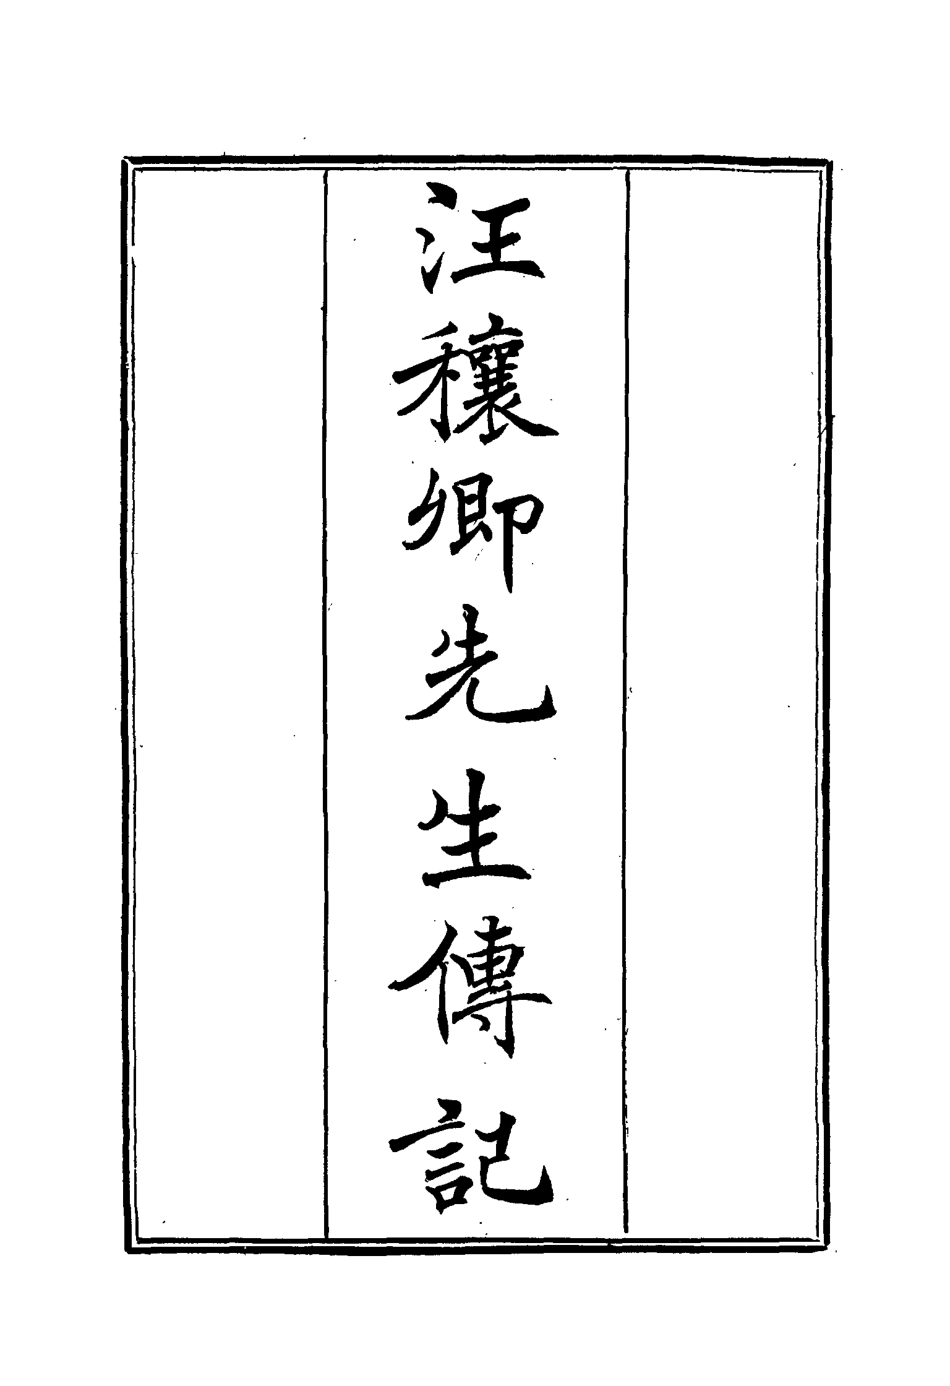 汪穰卿先生傳記